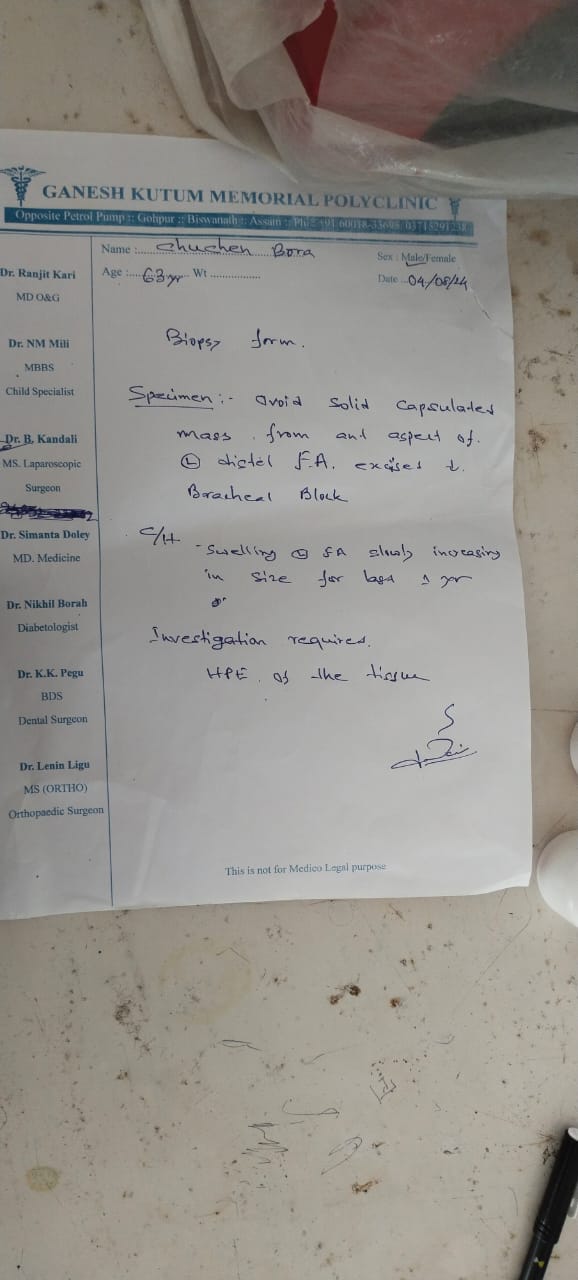 GANESH KUTUM MEMORIAL POLYCLINIC
Opposite Petrol Pump :: Gohpur :: Biswanath :: Assam :: Ph.: +91 60018-33695, 03715291238
Name : Chuchen Bora
Sex : Male/Female
Age : 63 yr Wt
Date 04/08/24
Dr. Ranjit Kari
MD O&G
Dr. NM Mili
MBBS
Child Specialist
Dr. B. Kandali
MS. Laparoscopic
Surgeon
Dr. Simanta Doley
MD. Medicine
Dr. Nikhil Borah
Diabetologist
Dr. K.K. Pegu
BDS
Dental Surgeon
Dr. Lenin Ligu
MS (ORTHO)
Orthopaedic Surgeon
Biopsy form.
Specimen :- ovoid solid capsulated
mass. from ant aspect of.
(L) distel F.A. excises t.
Bracheal Block
C/H
- Swelling (L) FA slowly increasing
in size for last 1 yr
Investigation requires.
HPE of the tissue
This is not for Medico Legal purpose